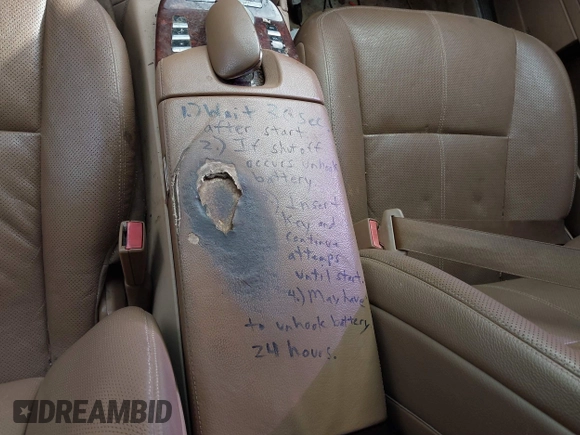 1.) Wait 30 sec.
after start
2.) If shutoff
occurs unhook
battery
3.) Insert
key and
continue
attemps
until start.
4.) May have
to unhook battery
24 hours.
DREAMBID